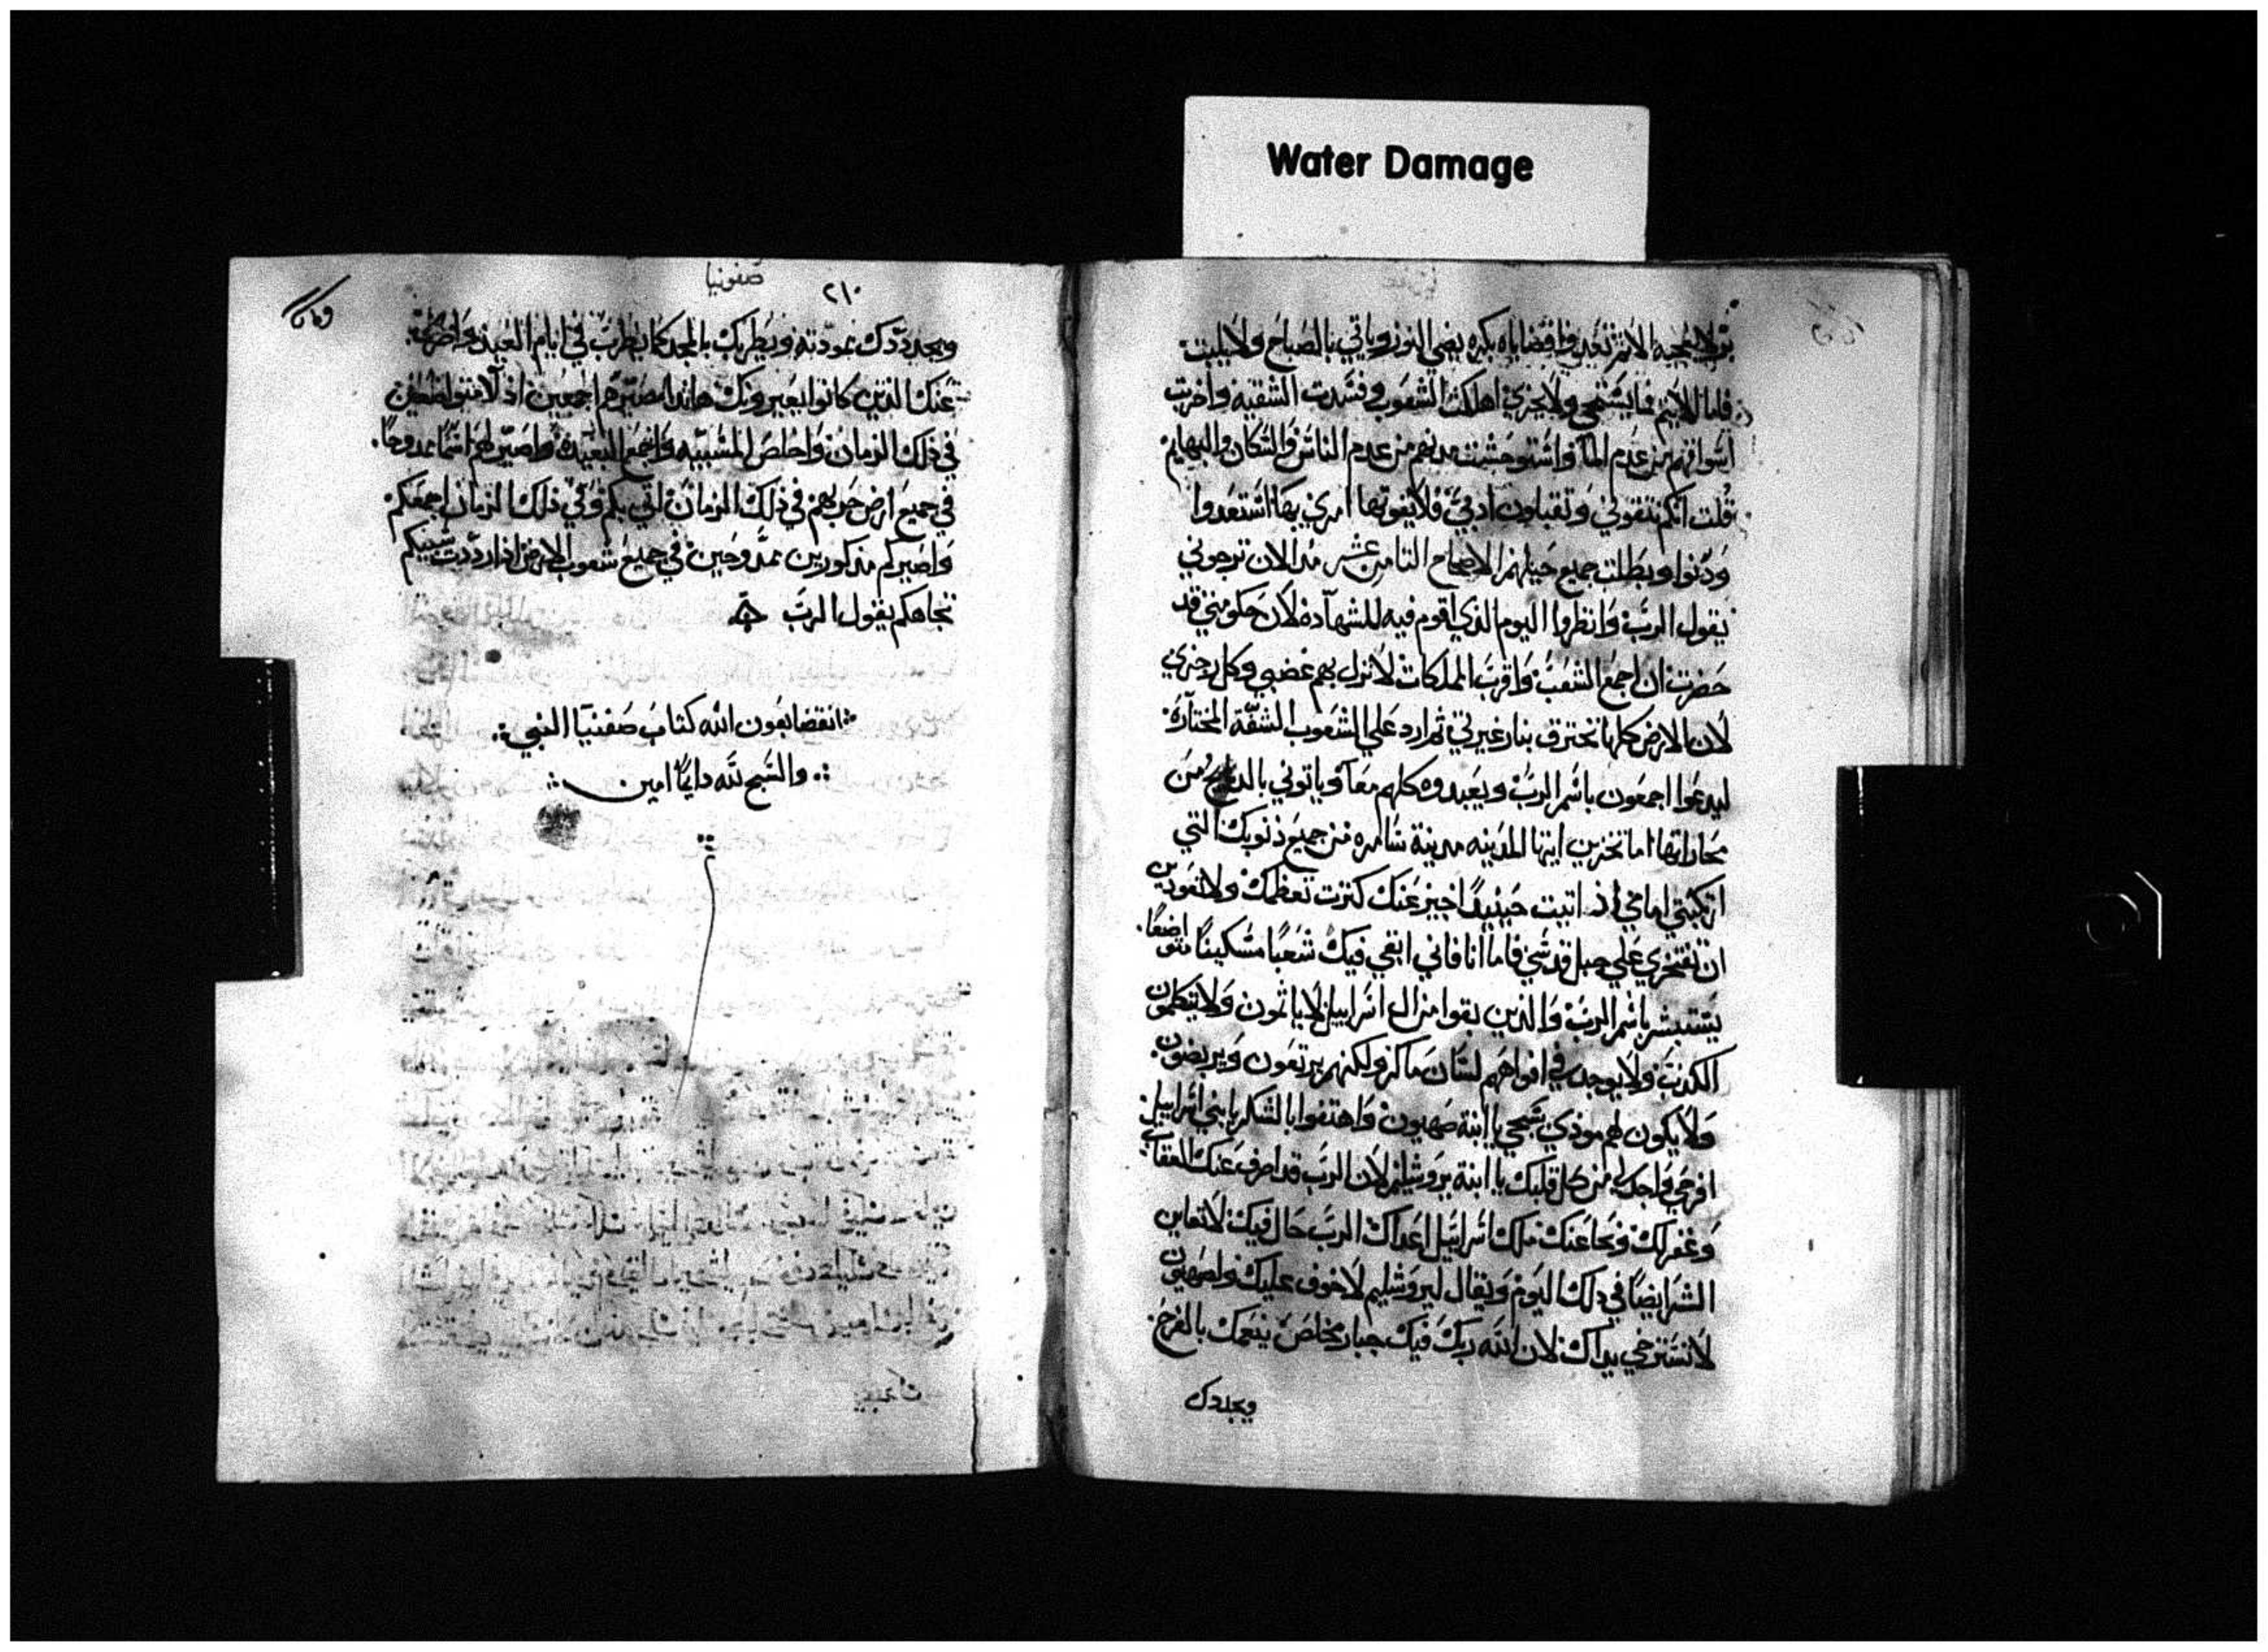 Water Damage
بر لا يحب الاثم
بكره يضي النور وياتي بالصباح ولا يلبث
فاما الاثيم فما يستحي ولا يخزي اهلكت الشعوب وفسدت الشقيه واخربت
اسواقهم من عدم الما واستوحشت مدنهم من عدم الناس والسكان والبهايم
قلت انكم تتقوني وتقبلون ادبي فلا يفوتها امري بها استعدوا
ودنوا وبطلت جميع حيلهم الاصحاح الثامن عشر مد الان ترجوني
يقول الرب وانظروا اليوم الذي اقوم فيه للشهادة لان حكومتي قد
حضرت ان اجمع الشعب واقرب المملكات لانزل بهم غضبي وكل رجزي
لان الارض كلها تحترق بنار غيرتي ثم ارد علي الشعوب الشفة المختارة
ليدعوا اجمعون باسم الرب ويعبدوه كلهم معا وياتوني بالدبايح من
مجاراتها اما تخزين ايتها المدينه مدينة شامره من جميع ذنوبك التي
ارتكبتي امامي اذ اتيت حينيذ اجيز عنك كثرت تعظمك ولا تعودين
ان تفتخري علي جبل قدسي فاما انا فاني ابقي فيك شعبا مسكينا متواضعا
يستبشر باسم الرب والذين بقوا من ال اسراييل لا ياثمون ولا يتكلمون
الكدب ولا يوجد في افواههم لسان ماكر ولكنهم يرتعون ويربضون
ولا يكون لهم موذي سبحي يا ابنة صهيون واهتفوا بالشكر يا بني اسراييل
افرحي واجدلي من كل قلبك يا ابنة يروشليم لان الرب قد صرف عنك العقاب
وغفر لك ونحا عنك ملك اسراييل اعداك الرب حال فيك لا تعاين
الشر ايضا في دلك اليوم ويقال ليروشليم لا خوف عليك ولصهيون
لا تسترخي يداك لان الله ربك فيك جبار مخلص ينعمك بالفرح
ويجددك
صفونيا
٢١٠
ويجددك بمودته ويطربك بالمجد كما يطرب في ايام العيد
عنك الذين كانوا يعيرونك هاندا مصيرهم اجمعين
في ذلك الزمان واخلص المسبيه واجمع البعيدة واصير لهم اسما ممدوحا
في جميع ارض حربهم في ذلك الزمان اتي بكم وفي ذلك الزمان اجمعكم
واصيركم مذكورين ممدوحين في جميع شعوب الارض اذا رددت سبيكم
تجاهكم يقول الرب
انقضا بعون الله كتاب صفنيا النبي
والسبح لله دايما امين